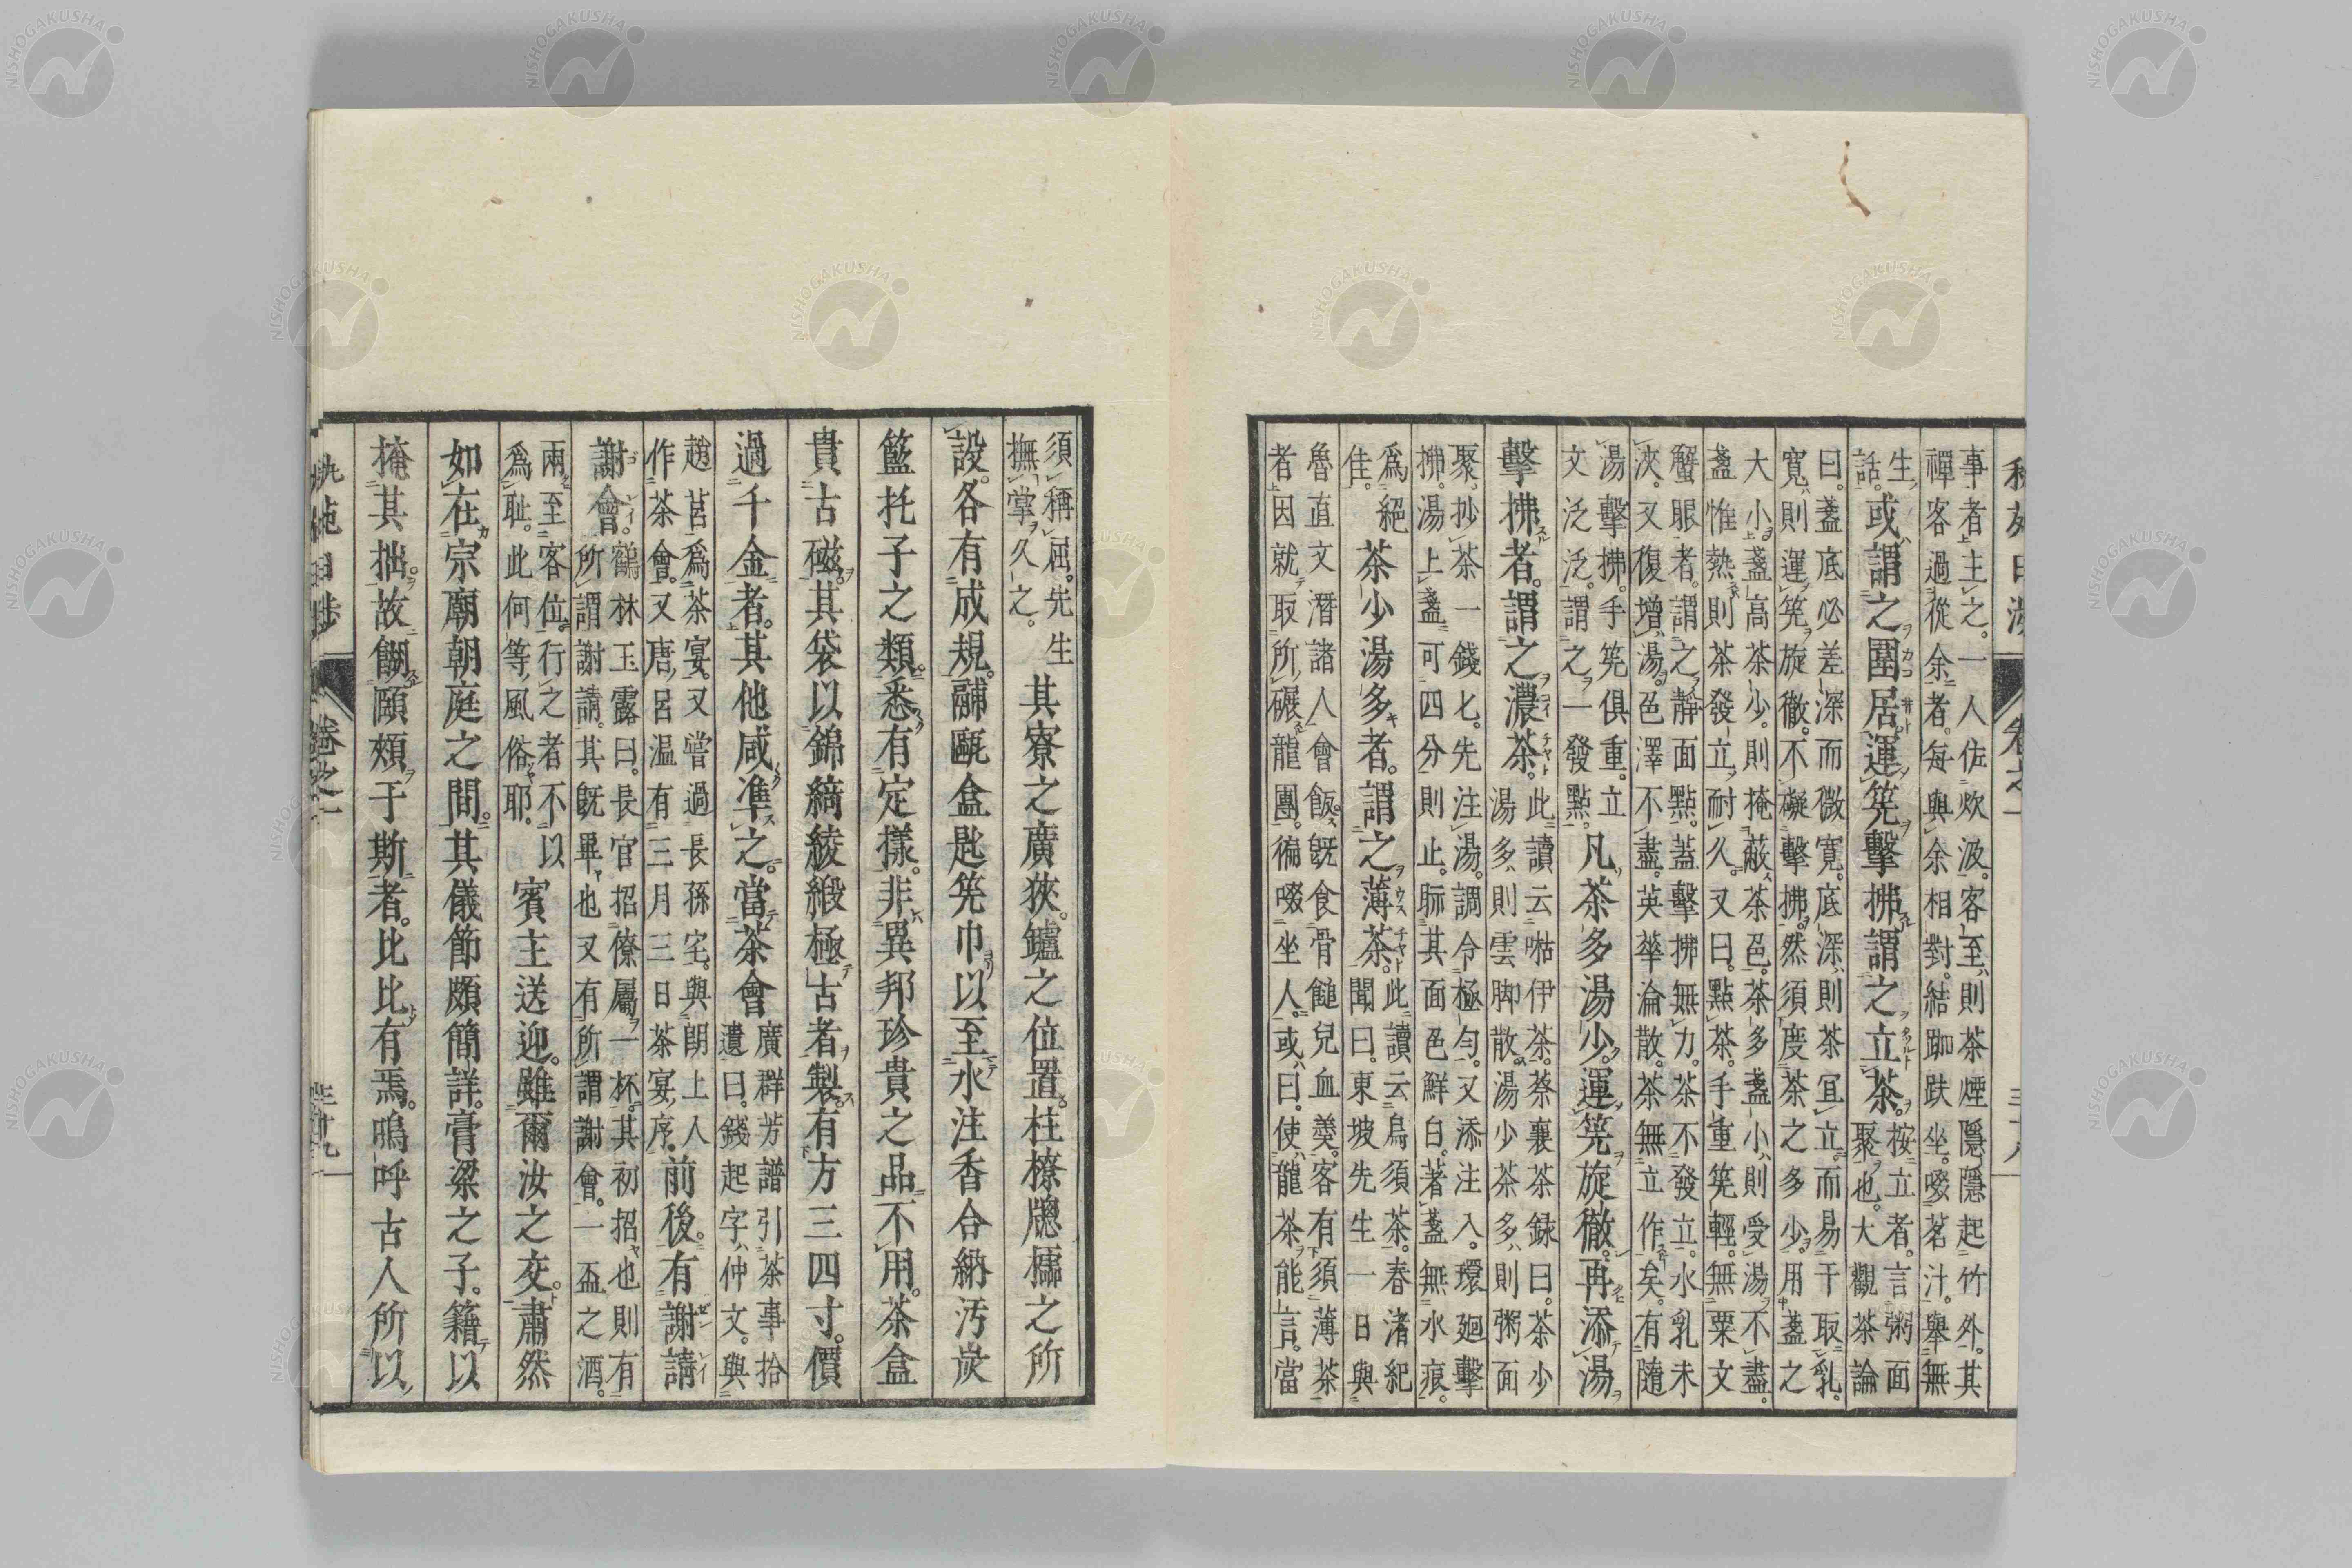 事者主之。一人佐炊汲。客至則茶煙隱隱起竹外。其
禪客過從余者。每與余相對。結跏趺坐。啜茗汁。舉無
生
話。或謂之圍居運筅擊拂謂之立茶。按立者。言粥面
聚也。大觀茶論
曰。盞底必差深而微寛。底深則茶宜立。而易于取乳。
寛則運筅旋徹。不礙擊拂。然須度茶之多少。用盞之
大小。盞高茶少。則掩蔽茶色。茶多盞小則受湯不盡。
盞惟熱則茶發立耐久。又曰。點茶。手重筅輕。無粟文
蟹眼者。謂之靜面點。蓋擊拂無力。茶不發立。水乳未
浹。又復增湯。色澤不盡。英華淪散。茶無立作矣。有隨
湯擊拂。手筅俱重。立
文泛泛。謂之一發點。凡茶多湯少。運筅旋徹。再添湯
擊拂者。謂之濃茶。此讀云伊茶。蔡襄茶録曰。茶少
湯多則雲脚散。湯少茶多則粥面
聚。抄茶一錢匕。先注湯。調令極匀。又添注入。環廻擊
拂。湯上盞可四分則止。眎其面色鮮白。著盞無水痕。
爲絕
佳。茶少湯多者。謂之薄茶。此讀云烏須茶。春渚紀
聞曰。東坡先生一日與
魯直文潛諸人會飯。既食骨䭔兒血羹。客有須薄茶
者。因就取所碾龍團。徧啜坐人。或曰。使龍茶能言。當
須稱屈。先生
撫掌久之。其寮之廣狹。鑪之位置。柱橑牕櫺之所
設。各有成規。鬴甌盒匙筅巾。以至水注香合納汚炭
籃托子之類。悉有定樣。非異邦珍貴之品不用。茶盒
貴古磁。其袋以錦綺綾緞極古者製。有方三四寸。價
過千金者。其他咸準之。當茶會廣群芳譜引茶事拾
遺曰。錢起字仲文。與
趙莒爲茶宴。又嘗過長孫宅。與朗上人
作茶會。又唐呂温有三月三日茶宴序。前後。有謝請
謝會。鶴林玉露曰。長官招僚屬一杯。其初招也則有
所謂謝請。其既畢也又有所謂謝會。一盃之酒。
兩至客位。行之者不以
爲耻。此何等風俗耶。賓主送迎。雖爾汝之交。肅然
如在宗廟朝庭之間。其儀節頗簡詳。膏粱之子。籍以
掩其拙。故餬頤頰于斯者。比比有焉。嗚呼古人所以
卷之一